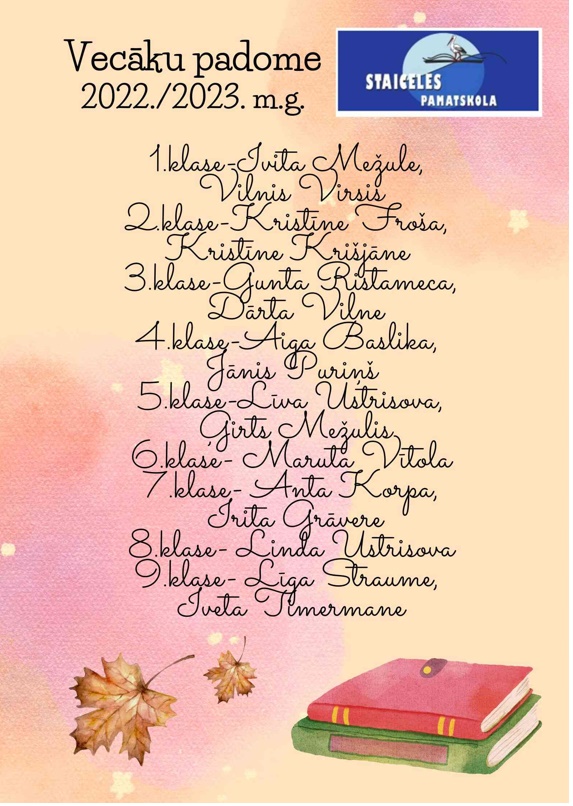 Vecāku padome
2022./2023. m.g.
STAICELES
PAMATSKOLA
1.klase-Ivita Mežule,
Vilnis Virsis
2.klase-Kristīne Froša,
Kristīne Krišjāne
3.klase-Gunta Ristameca,
Dārta Vilne
4.klase-Aiga Baslika,
Jānis Puriņš
5.klase-Līva Ustrisova,
Ģirts Mežulis
6.klase- Maruta Vītola
7.klase- Anta Korpa,
Irita Grāvere
8.klase- Linda Ustrisova
9.klase- Līga Straume,
Iveta Timermane